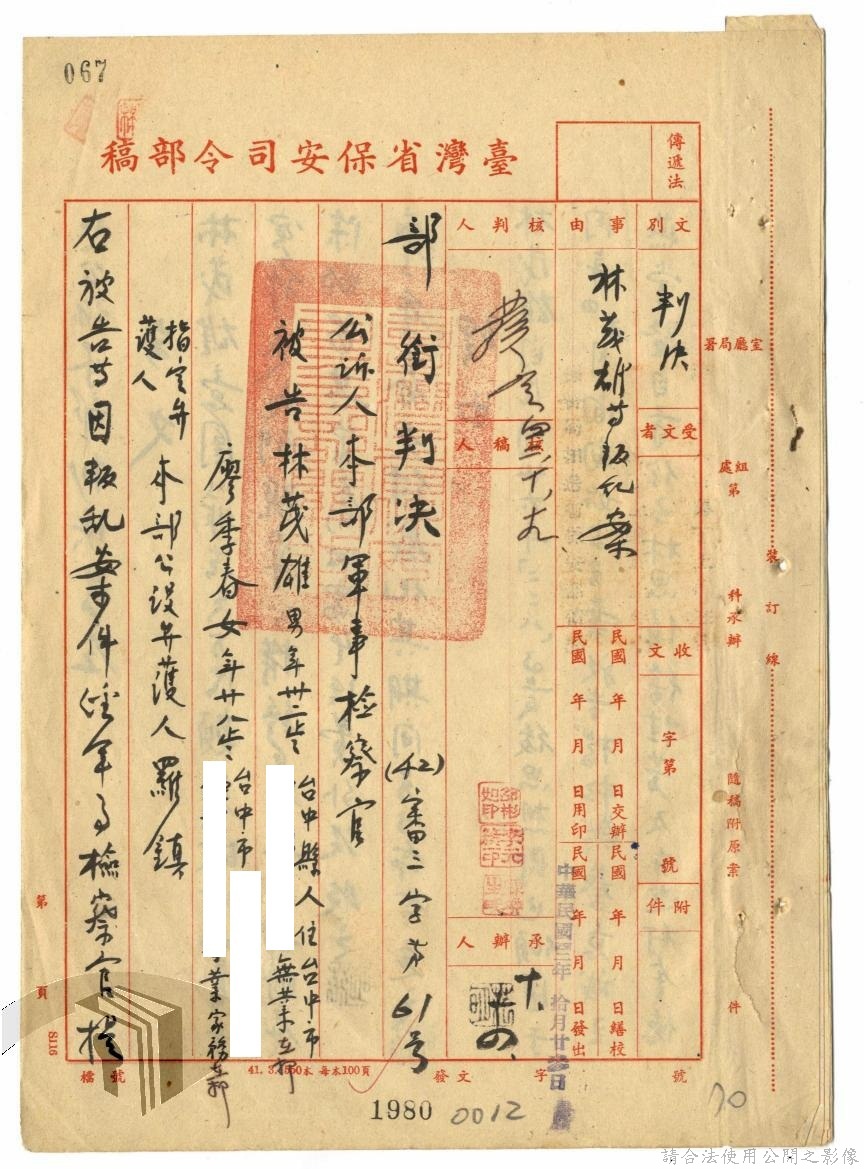 067
臺灣省保安司令部稿
傳遞法
文別
判決
事由
林茂雄等叛乱案
受文者
核判人
核稿人
承辦人
十、
廿四、
收文 字第 號
附件
民國 年 月 日交辦
民國 年 月 日繕校
民國 年 月 日用印
民國 年 月 日發出
中華民國 年 拾月廿 日
室廳局署
組處第
科承辦
隨稿附原案 件
裝訂線
部銜判決
(42)審三字第61号
公訴人本部軍事檢察官
被告林茂雄男年卅二歲台中縣人住台中市
無業在押
廖季春女年廿八歲台中市
業家務在押
指定弁護人 本部公設弁護人羅鎮
右被告等因叛乱案件經軍事檢察官提
第 頁
S116
檔號
41. 3. 本 每本100頁
發文 字 號
1980
0012
70
請合法使用公開之影像